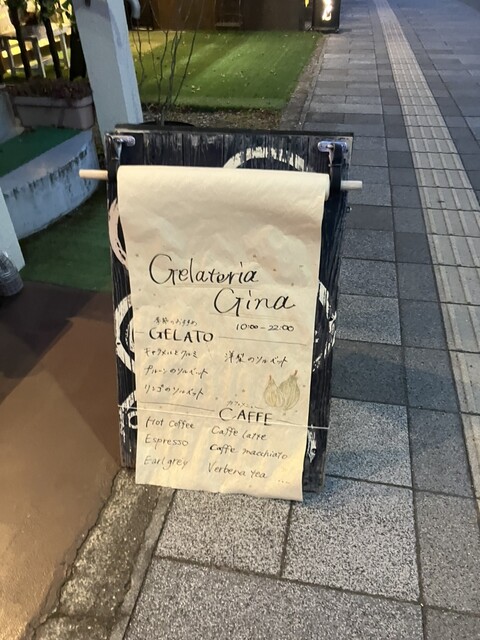 Gelateria
Gina
10:00-22:00
季節のおすすめ
GELATO
キャラメルとクルミ
洋梨のソルベット
プルーンのソルベット
リンゴのソルベット
CAFFE
Hot Coffee
Caffe latte
Espresso
Caffe macchiato
Earl grey
Verbena tea ...